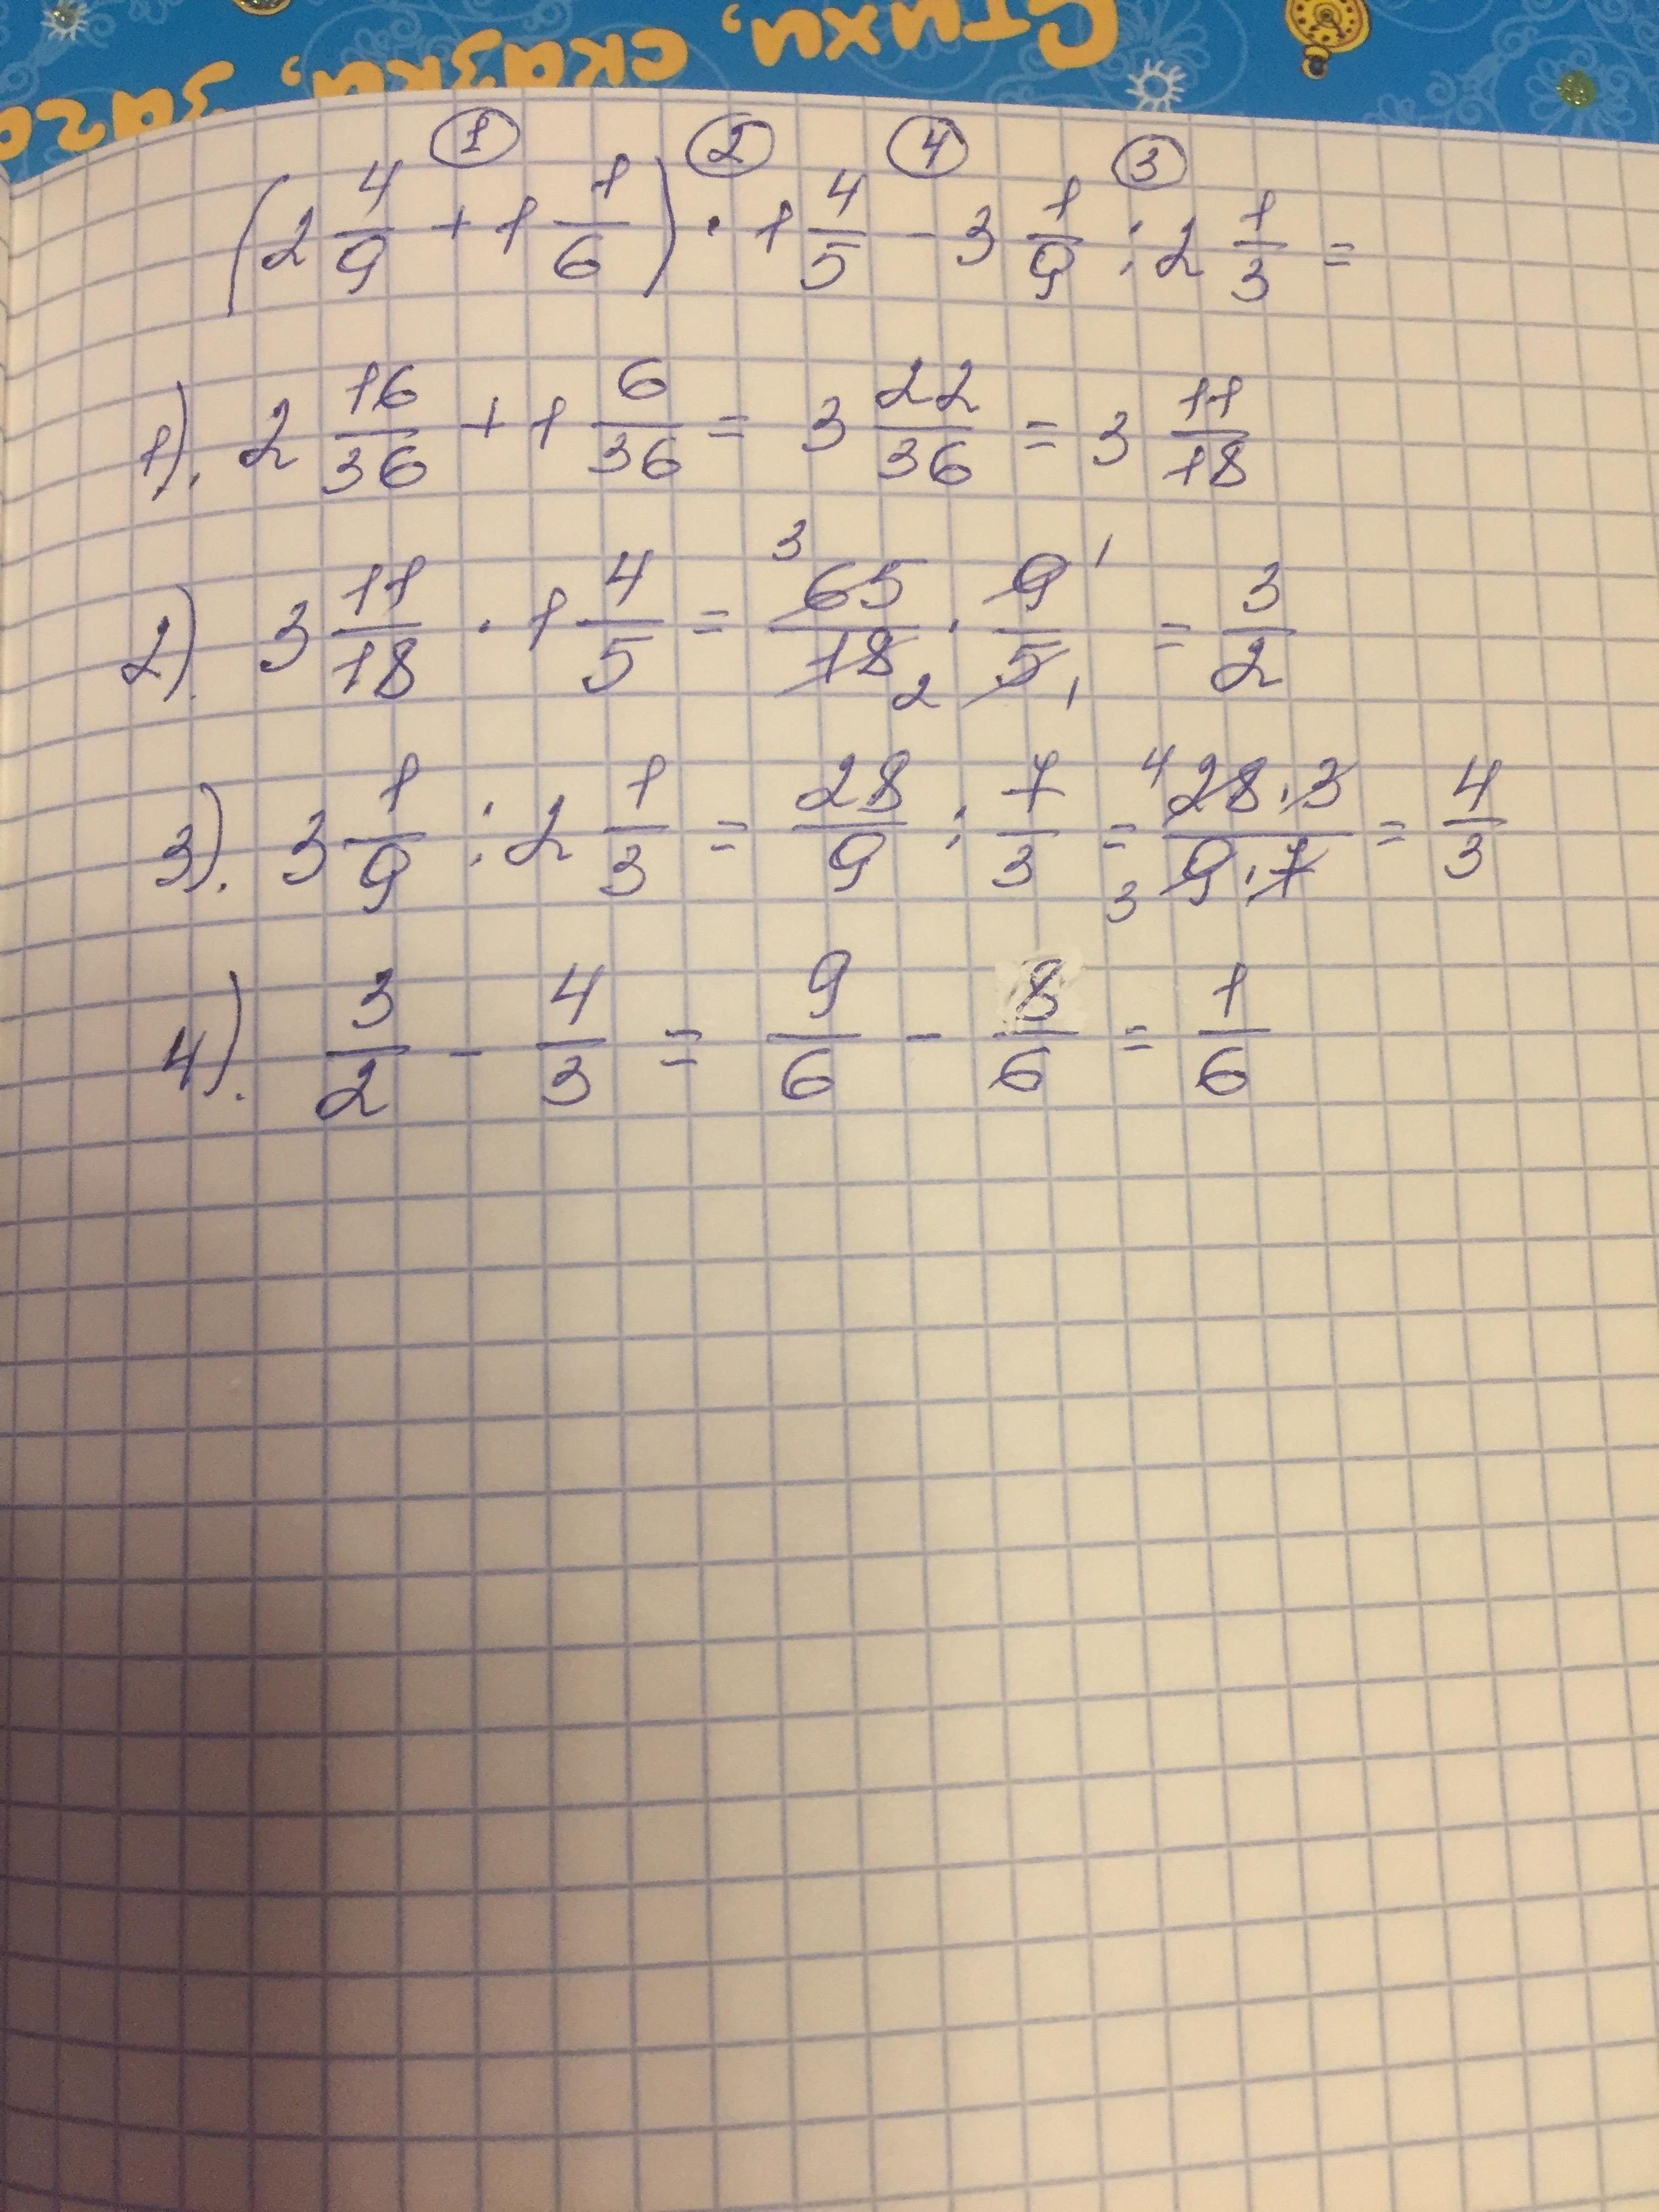 Стихи, сказки, зага
1 2 4 3
(2 4/9 + 1 1/6) · 1 4/5 - 3 1/9 : 2 1/3 =
1). 2 16/36 + 1 6/36 = 3 22/36 = 3 11/18
2). 3 11/18 · 1 4/5 = 3 65/18 2 · 9 1/5 1 = 3/2
3). 3 1/9 : 2 1/3 = 28/9 : 7/3 = 4 28·3/3 9·7 = 4/3
4). 3/2 - 4/3 = 9/6 - 8/6 = 1/6